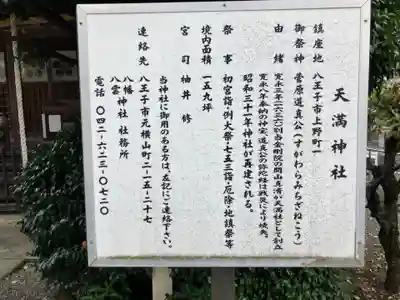 天満神社
鎮座地　八王子市上野町一
御祭神　菅原道真公(すがわらみちざねこう)
由緒　寛永三年(一六二六)別当金剛院の開山真清が天満社として創立
寛永八年奉納の神宝、道真公の弥陀経は戦災により焼失。
昭和三十一年神社が再建される。
祭事　初宮詣・例大祭・七五三詣・厄除・地鎮祭等
境内面積　一五九坪
宮司　袖井　修
当神社に御用のある方は、左記にご連絡下さい。
連絡先　八王子市元横山町二-一五-二十七
八幡
八雲神社　社務所
電話　〇四二-六二三-〇七二〇